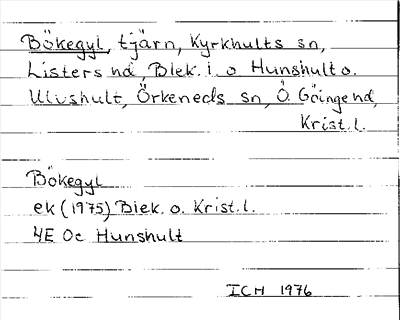 Bökegyl, tjärn, Kyrkhults sn,
Listers hd, Blek. l. o Hunshult o.
Ulvshult, Örkeneds sn, Ö. Göinge hd,
Krist. l.
Bökegyl
ek (1975) Blek. o. Krist. l.
4E 0c Hunshult
ICH 1976